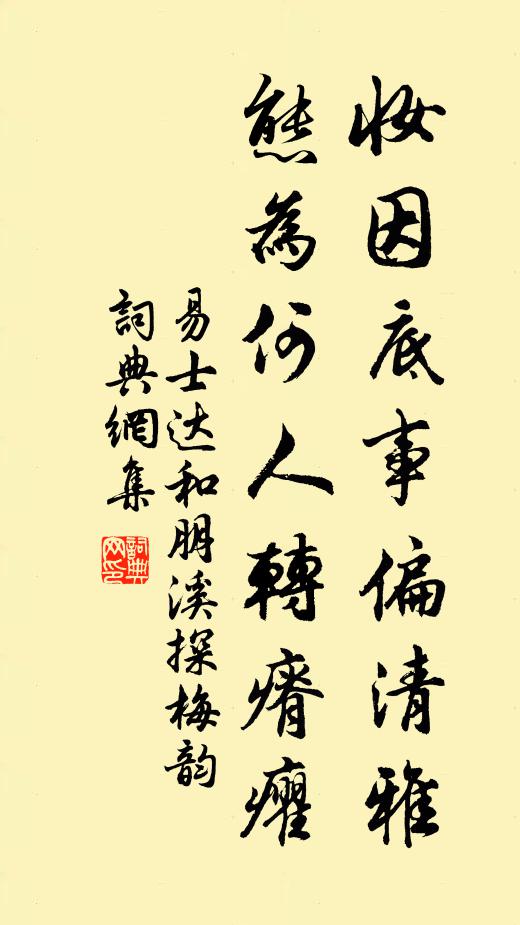 妆因底事偏清雅
態為何人轉瘠癯
易士达和朋溪探梅韵
詞典網集
詞典網印